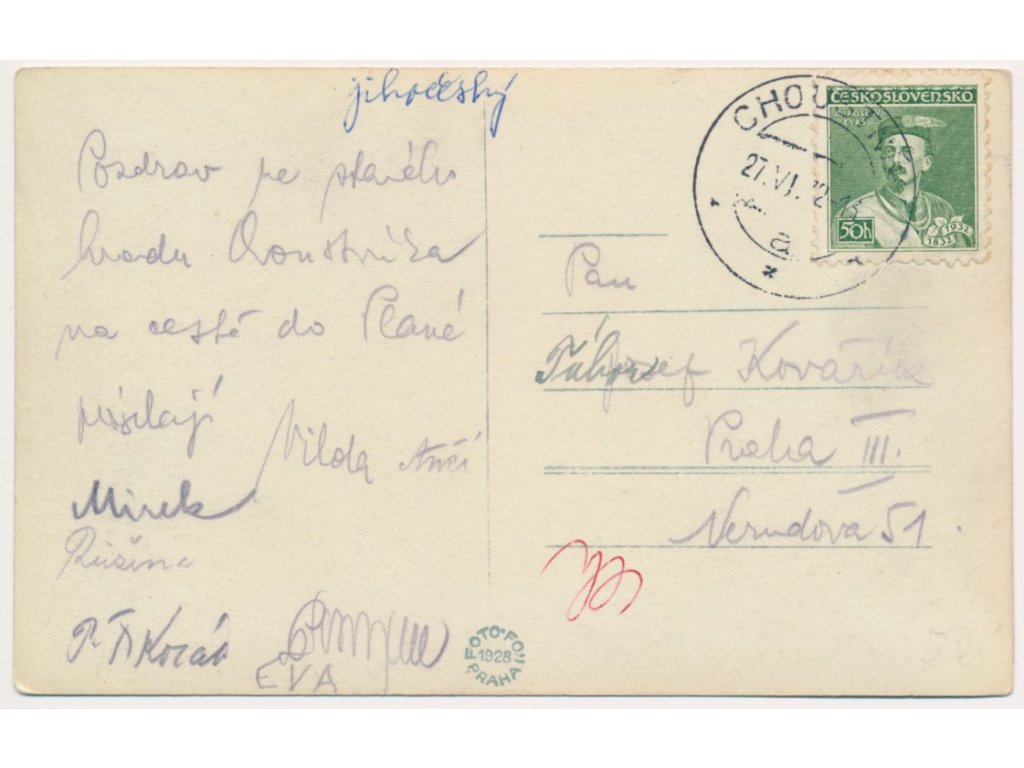 jihočeský
Pozdrav ze starého
hradu Choustníka
na cestě do Plané
posílají
Vilda
Mirek
Růžena
Kozák
EVA
FOTO-FON
1928
PRAHA
CHOUSTNÍK
27.VI.32-15
a
ČESKOSLOVENSKO
MIROSLAV
TYRŠ
50h
1832 1932
Pan
Tábor
Josef Kovářík
Praha III.
Nerudova 51.